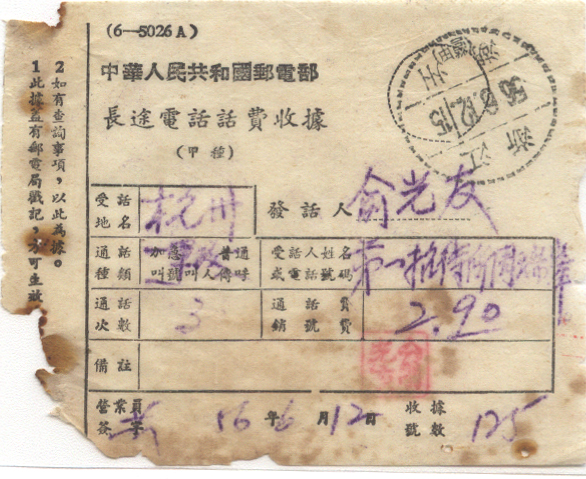 (6—5026A)
中華人民共和國郵電部
長途電話話費收據
(甲種)
2 如有查詢事項，以此為據。
1 此據蓋有郵電局戳記，方可生效
受話地名
杭州
發話人
俞光友
通話種類
加急 普通
叫號 叫人 傳呼
受話人姓名或電話號碼
第一招待所周瑞華
通話次數
3
通話費
銷號費
2.90
備註
營業員簽字
56年6月12日
收據號數
125
浙江
56.6.12.15